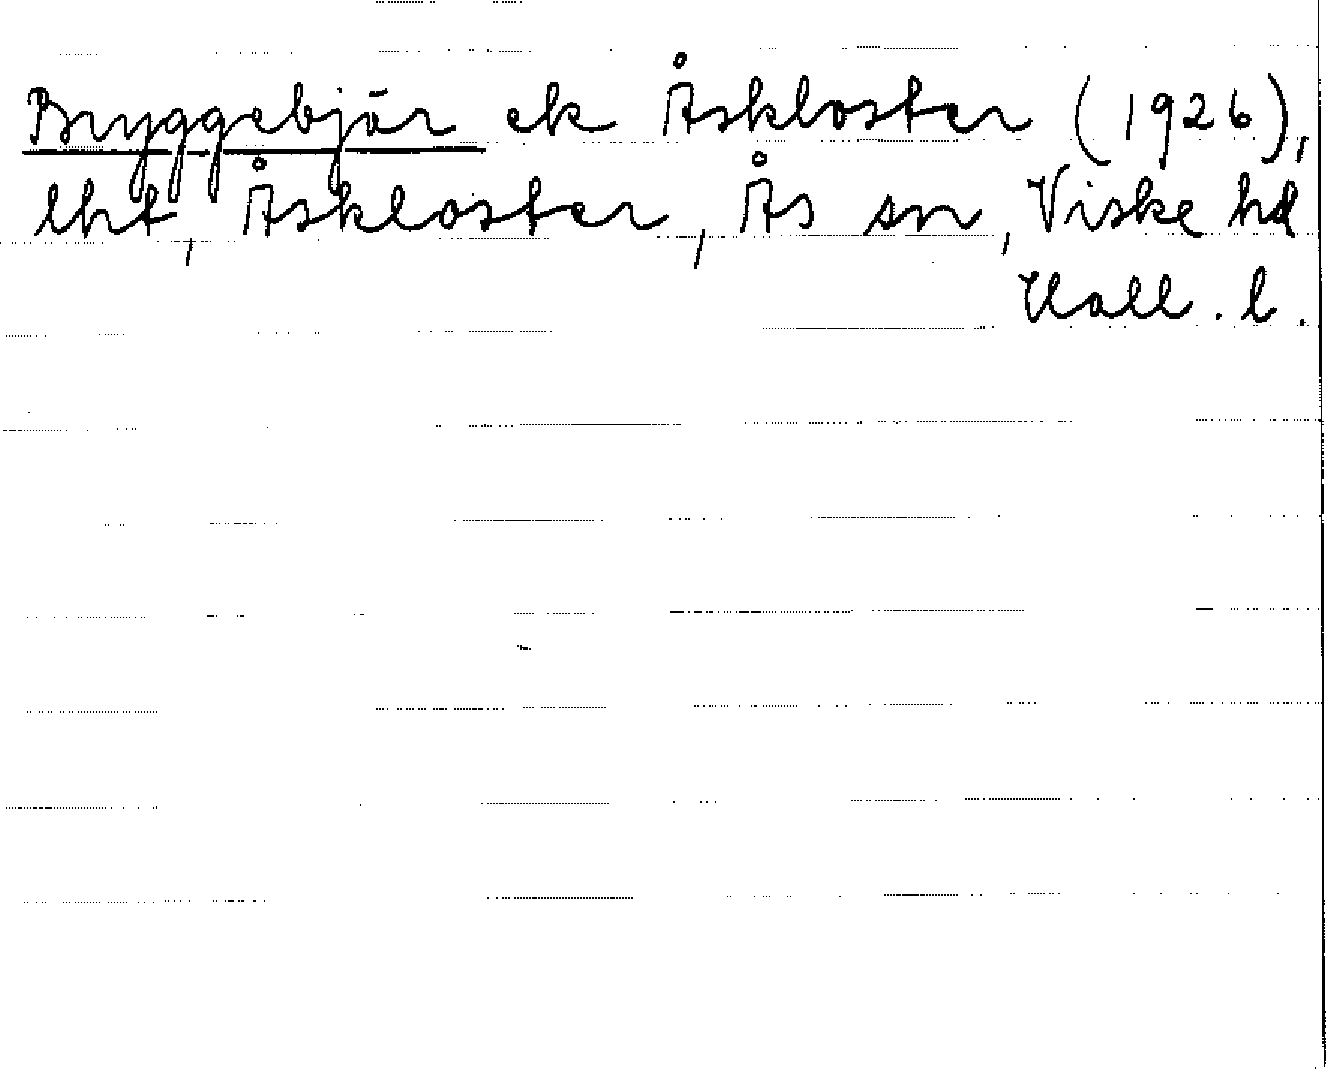 Bryggebjär ek Åskloster (1926),
lht, Åskloster, Ås sn, Viske hd
Hall. l.